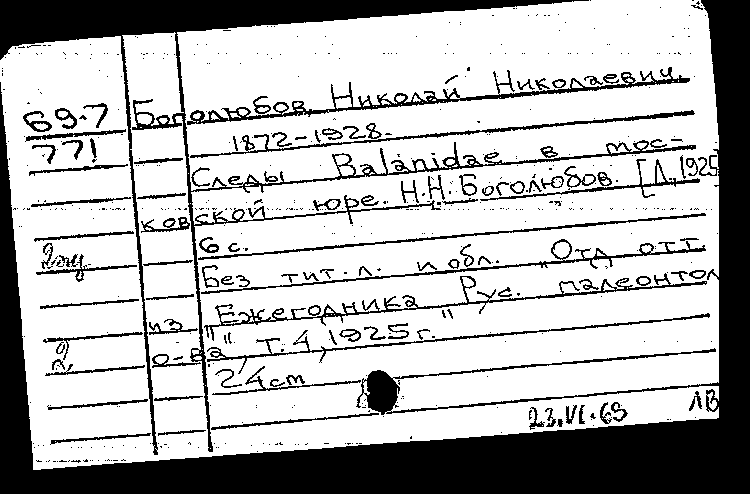 69-7
771
Боголюбов, Николай Николаевич.
1872-1928.
Следы Balanidae в мос-
ковской юре. Н.Н. Боголюбов. [Л., 1925
6 с.
Без тит. л. и обл. „Отд. отт.
из "Ежегодника Рус. палеонтол
о-ва", т. 4, 1925 г."
2
24 cm
23.VI.69 ЛВ